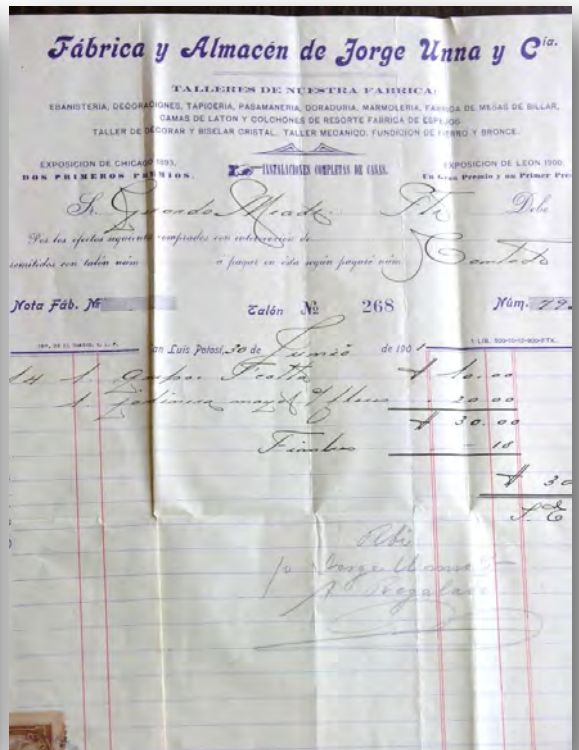 Fábrica y Almacén de Jorge Unna y Cia.
TALLERES DE NUESTRA FABRICA:
EBANISTERIA, DECORACIONES, TAPICERIA, PASAMANERIA, DORADURIA, MARMOLERIA, FABRICA DE MESAS DE BILLAR,
CAMAS DE LATON Y COLCHONES DE RESORTE FABRICA DE ESPEJOS
TALLER DE DECORAR Y BISELAR CRISTAL. TALLER MECANICO, FUNDICION DE FIERRO Y BRONCE.
EXPOSICION DE CHICAGO 1893.
DOS PRIMEROS PREMIOS.
INSTALACIONES COMPLETAS DE CASAS.
EXPOSICION DE LEON 1900.
Un Gran Premio y un Primer Pre
Sr. Meade Debe
Por los efectos siguiente comprados con intervención de
remitidos con talón núm. a pagar en ésta según pagaré núm. Contado
Nota Fáb. Nº Talón Nº 268 Núm. 79
an Luis Potosí, 30 de Junio de 1901
14 1. $ 10.00
1. mayol 20.00
$ 30.00
Timbres 18
$ 30
S. E
Jorge Unna